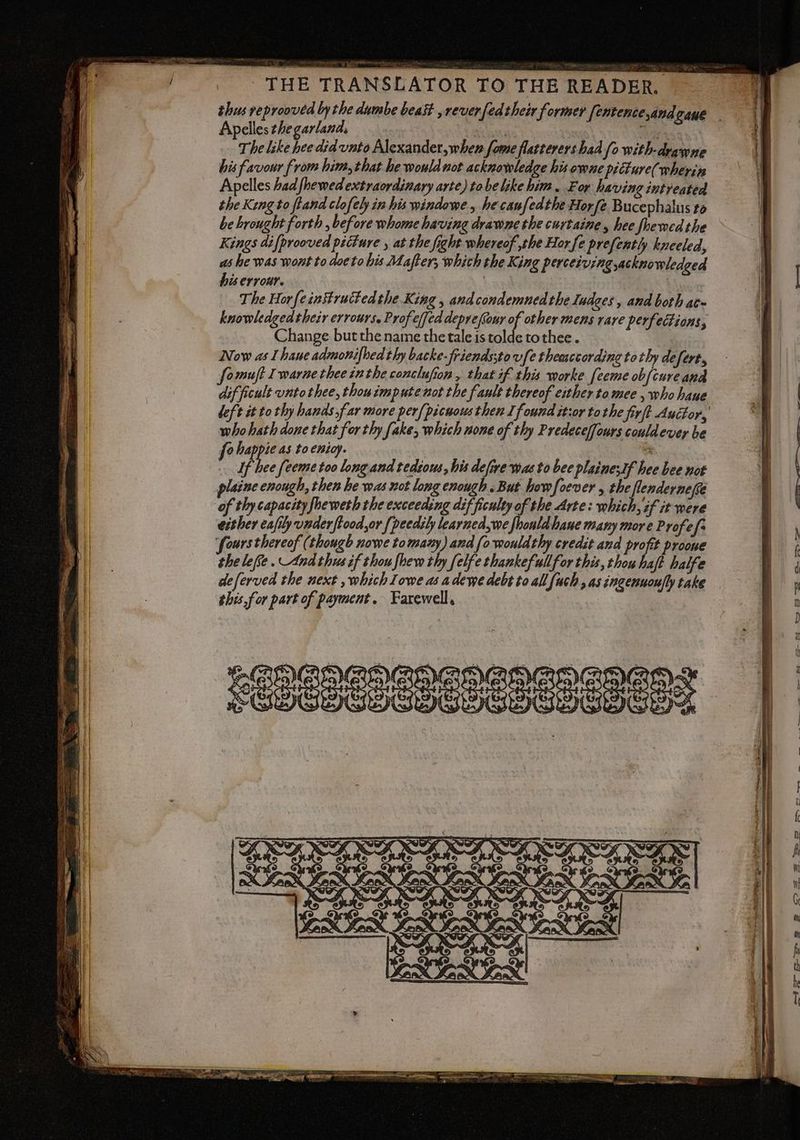 THE TRANSLATOR TO THE READER.
thus reprooved by the dumbe beast, reversed their former sentence, and gaue
Apelles the garland.
The like hee did vnto Alexander, when some flatterers had so with-drawne
his favour from him, that he would not acknowledge his owne picture (wherin
Apelles had shewed extraordinary arte) to be like him. For having intreated
the King to stand closely in his windowe, he caused the Horse Bucephalus to
be brought forth, before whome having drawne the curtaine, hee shewed the
Kings disprooved picture, at the sight whereof, the Horse presently kneeled,
as he was wont to doe to his Master, which the King perceiving, acknowledged
his errour.
The Horse instructed the King, and condemned the Iudges, and both ac-
knowledged their errours. Professed depressour of other mens rare perfections,
Change but the name the tale is tolde to thee.
Now as I haue admonished thy backe-friends, to vse thee according to thy desert,
so must I warne thee in the conclusion, that if this worke seeme obscure and
difficult vnto thee, thou impute not the fault thereof either to mee, who haue
left it to thy hands, far more perspicuous then I found it: or to the first Auctor,
who hath done that for thy sake, which none of thy Predecessours could ever be
so happie as to enioy.
If hee seeme too long and tedious, his desire was to bee plaine; If hee bee not
plaine enough, then he was not long enough. But howsoever, the slendernesse
of thy capacity sheweth the exceeding difficulty of the Arte: which, if it were
either easily vnderstood, or speedily learned, we should haue many more Profes-
sours thereof (though nowe to many) and so would thy credit and profit prooue
the lesse. And thus if thou shew thy selfe thankefull for this, thou hast halfe
deserved the next, which I owe as a dewe debt to all such, as ingenuously take
this, for part of payment. Farewell.